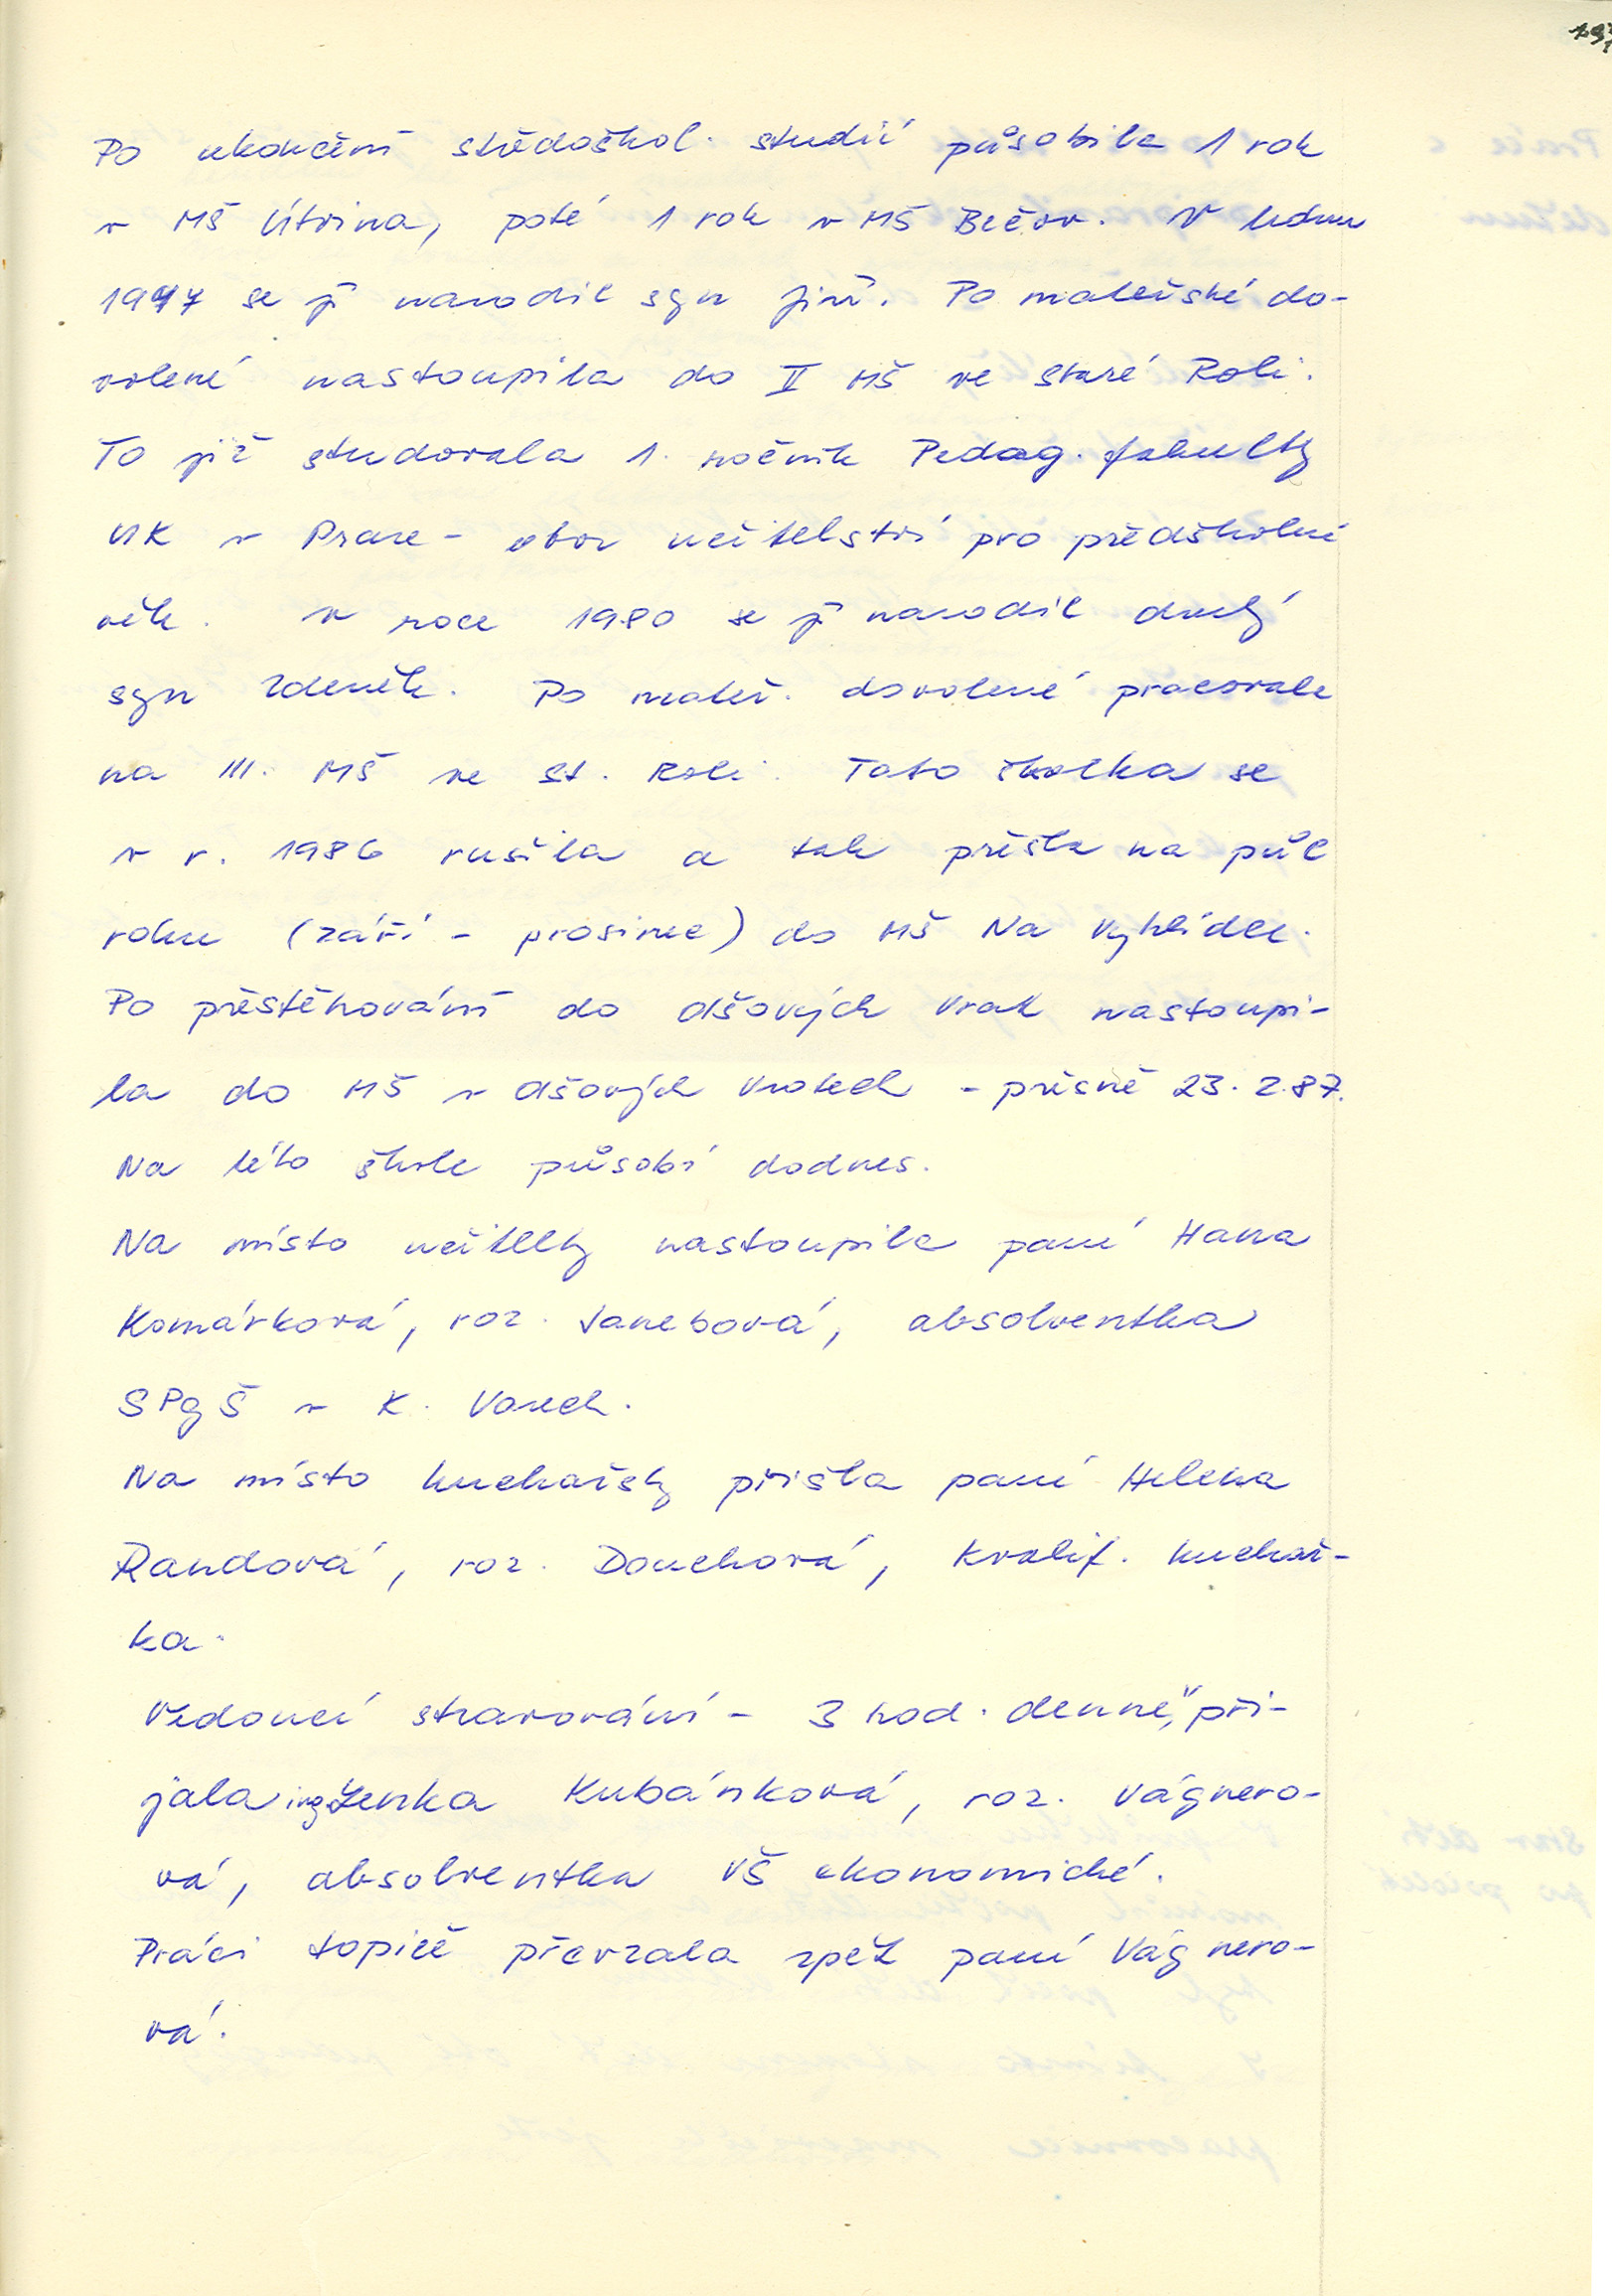 Po ukončení středoškol. studií působila 1 rok
v MŠ Útvina, poté 1 rok v MŠ Bečov. V lednu
1977 se jí narodil syn Jiří. Po mateřské do-
volené nastoupila do II MŠ ve Staré Roli.
To již studovala 1. ročník Pedag. fakulty
UK v Praze - obor učitelství pro předškolní
věk. V roce 1980 se jí narodil druhý
syn Zdeněk. Po mateř. dovolené pracovala
na III. MŠ ve St. Roli. Tato školka se
v r. 1986 rušila a tak přešla na půl
roku (září - prosinec) do MŠ Na Vyhlídce.
Po přestěhování do Olšových Vrat nastoupi-
la do MŠ v Olšových Vratech - přesně 23. 2. 87.
Na této škole působí dodnes.
Na místo učitelky nastoupila paní Hana
Komárková, roz. Janebová, absolventka
SPgŠ v K. Varech.
Na místo kuchařky přišla paní Helena
Randová, roz. Douchová, kvalif. kuchař-
ka.
Vedoucí stravování - 3 hod. denně, při-
jala ing. Lenka Kubánková, roz. Vágnero-
vá, absolventka VŠ ekonomické.
Práci topiče převzala zpět paní Vágnero-
vá.